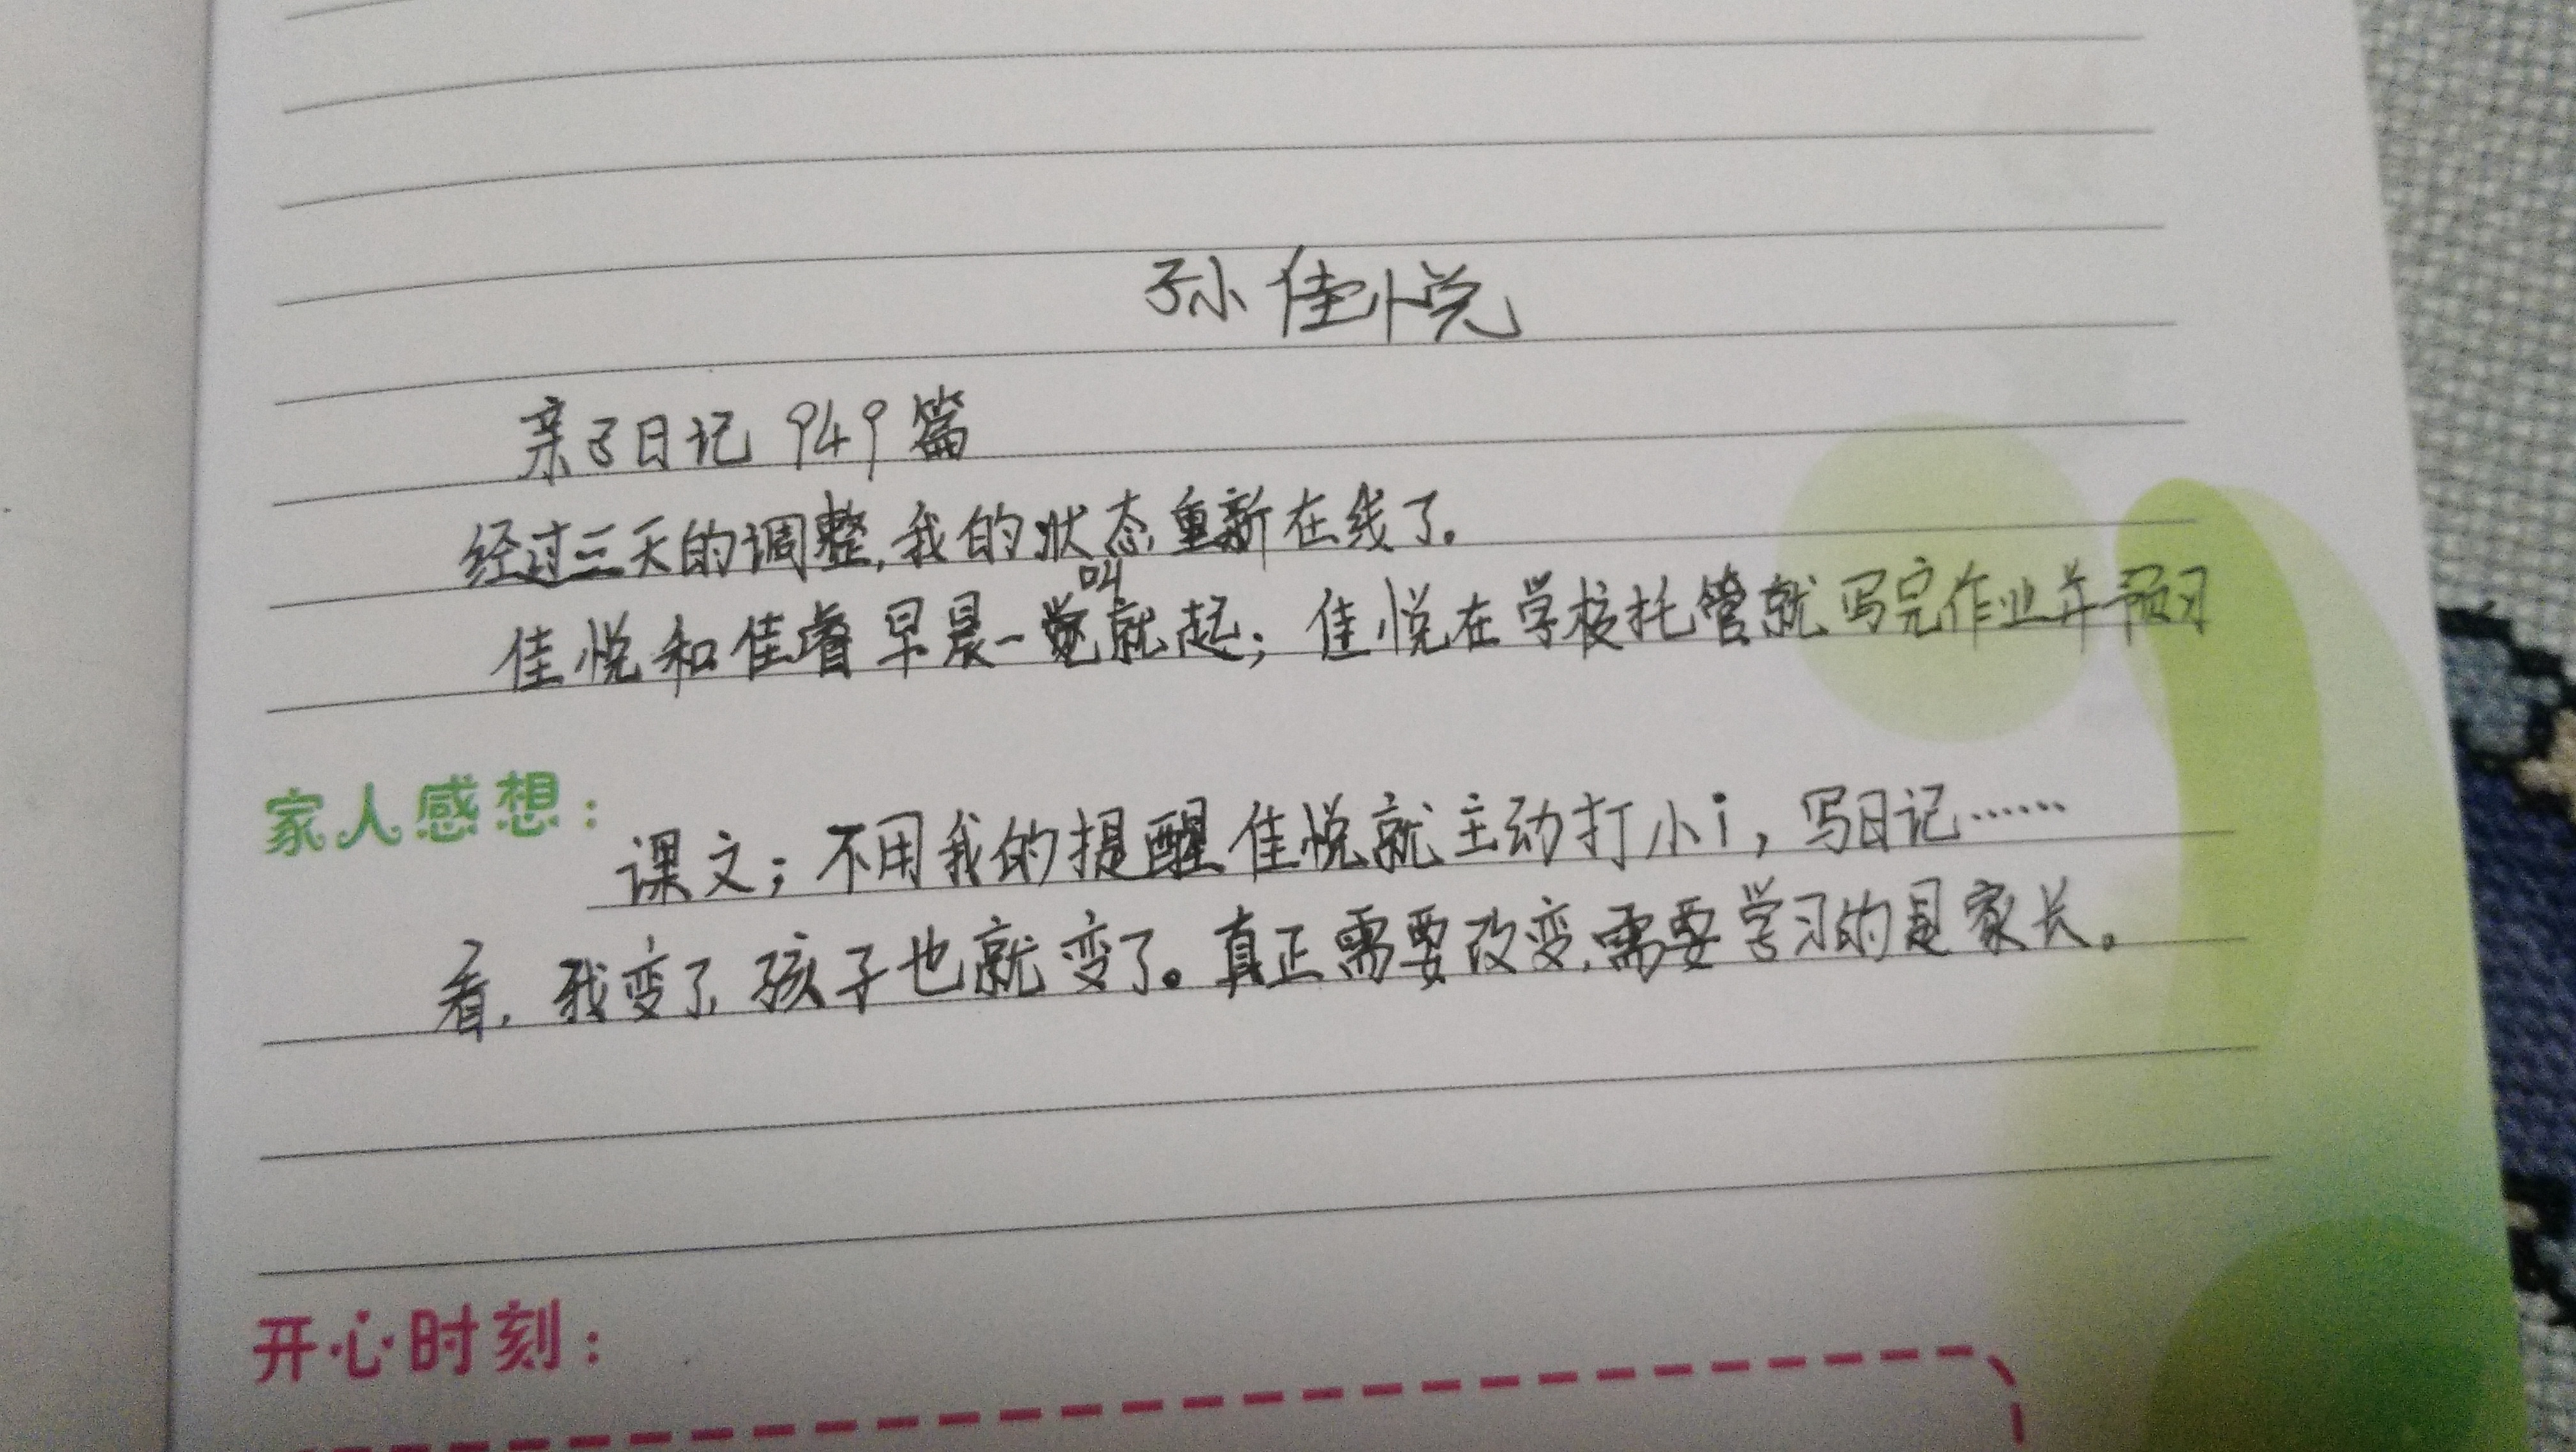 孙佳悦
亲子日记 949篇
经过三天的调整,我的状态重新在线了。
佳悦和佳睿早晨一叫就起；佳悦在学校托管就写完作业并预习
家人感想：
课文；不用我的提醒佳悦就主动打小i，写日记……
看,我变了,孩子也就变了。真正需要改变,需要学习的是家长。
开心时刻：